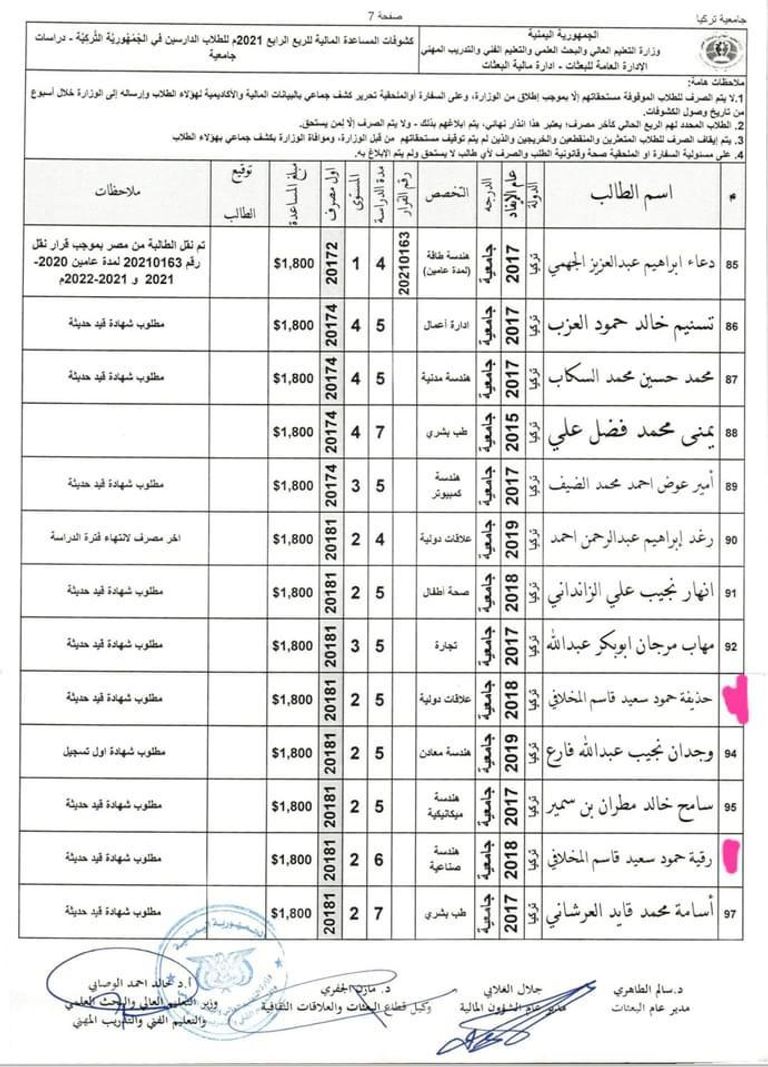 جامعية تركيا
صفحة 7
الجمهورية اليمنية
وزارة التعليم العالي والبحث العلمي والتعليم الفني والتدريب المهني
الادارة العامة للبعثات - ادارة مالية البعثات
كشوفات المساعدة المالية للربع الرابع 2021م للطلاب الدارسين في الجُمْهُوريَّة التُّركيَّة - دراسات جامعية
ملاحظات هامة:
1.لا يتم الصرف للطلاب الموقوفة مستحقاتهم إلاّ بموجب إطلاق من الوزارة، وعلى السفارة أوالملحقية تحرير كشف جماعي بالبيانات المالية والأكاديمية لهؤلاء الطلاب وإرساله إلى الوزارة خلال أسبوع
من تاريخ وصول الكشوفات.
2. الطلاب المحدد لهم الربع الحالي كآخر مصرف؛ يعتبر هذا انذار نهائي، يتم ابلاغهم بذلك - ولا يتم الصرف إلّا لمن يستحق.
3. يتم إيقاف الصرف للطلاب المتعثرين والمنقطعين والخريجين والذين لم يتم توقيف مستحقاتهم من قبل الوزارة، وموافاة الوزارة بكشف جماعي بهؤلاء الطلاب
4. على مسئولية السفارة او الملحقية صحة وقانونية الطلب والصرف لأي طالب لا يستحق ولم يتم الإبلاغ به.
# اسم الطالب الدولة عام الإيفاد الدرجه التخصص رقم القرار مدة الدراسة المستوى اول مصرف مبلغ المساعدة توقيع الطالب ملاحظات
85 دعاء ابراهيم عبدالعزيز الجهمي تركيا 2017 جامعية هندسة طاقة (لمدة عامين) 20210163 4 1 20172 $1,800 تم نقل الطالبة من مصر بموجب قرار نقل رقم 20210163 لمدة عامين 2020-2021 و 2021-2022م
86 تسنيم خالد حمود العزب تركيا 2017 جامعية ادارة أعمال 5 4 20174 $1,800 مطلوب شهادة قيد حديثة
87 محمد حسين محمد السكاب تركيا 2017 جامعية هندسة مدنية 5 4 20174 $1,800 مطلوب شهادة قيد حديثة
88 يمنى محمد فضل علي تركيا 2015 جامعية طب بشري 7 4 20174 $1,800
89 أمير عوض احمد محمد الضيف تركيا 2017 جامعية هندسة كمبيوتر 5 3 20174 $1,800 مطلوب شهادة قيد حديثة
90 رغد إبراهيم عبدالرحمن احمد تركيا 2019 جامعية علاقات دولية 4 2 20181 $1,800 اخر مصرف لانتهاء فترة الدراسة
91 انهار نجيب علي الزانداني تركيا 2018 جامعية صحة اطفال 5 2 20181 $1,800 مطلوب شهادة قيد حديثة
92 مهاب مرجان ابوبكر عبدالله تركيا 2017 جامعية تجارة 5 3 20181 $1,800 مطلوب شهادة قيد حديثة
حذيفة حمود سعيد قاسم المخلافي تركيا 2018 جامعية علاقات دولية 5 2 20181 $1,800 مطلوب شهادة قيد حديثة
94 وجدان نجيب عبدالله فارع تركيا 2019 جامعية هندسة معادن 5 2 20181 $1,800 مطلوب شهادة اول تسجيل
95 سامح خالد مطران بن سمير تركيا 2017 جامعية هندسة ميكانيكية 5 2 20181 $1,800 مطلوب شهادة قيد حديثة
رقية حمود سعيد قاسم المخلافي تركيا 2018 جامعية هندسة صناعية 6 2 20181 $1,800 مطلوب شهادة قيد حديثة
97 أسامة محمد قايد العرشاني تركيا 2017 جامعية طب بشري 7 2 20181 $1,800 مطلوب شهادة قيد حديثة
د.سالم الطاهري
مدير عام البعثات
جلال الغلابي
مدير عام الشؤون المالية
د. مازن الجفري
وكيل قطاع البعثات والعلاقات الثقافية
أ.د خالد احمد الوصابي
وزير التعليم العالي والبحث العلمي
والتعليم الفني والتدريب المهني